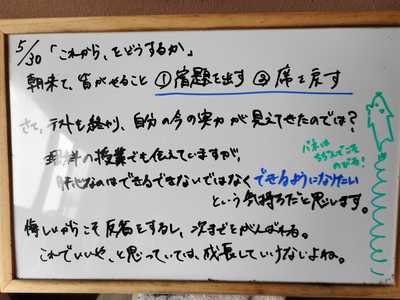 5/30 「これから、をどうするか」
朝来て、皆がやること ①宿題を出す ②席を戻す
さて、テストも終わり、自分の今の実力が見えてきたのでは？
理科の授業でも伝えていますが、
大事なのはできるできないではなく できるようになりたい
という気持ちだと思います。
バネは
ちぢんでこそ
のびる！
悔しいからこそ反省をするし、次までとがんばれる。
これでいいや、と思っていては、成長していけないよね。